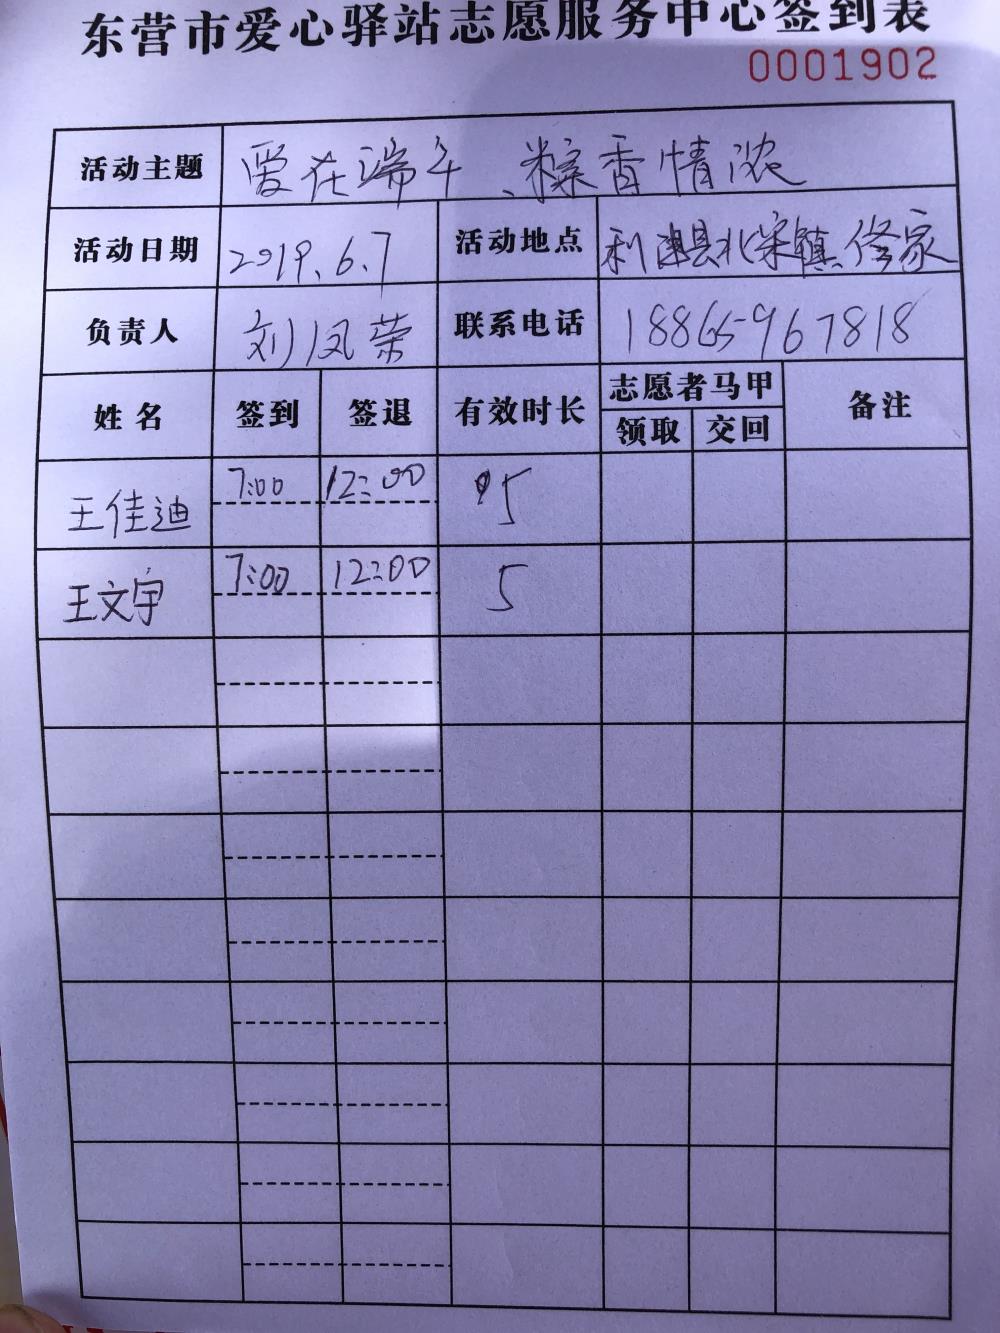 东营市爱心驿站志愿服务中心签到表
0001902
活动主题 爱在端午、粽香情浓
活动日期 2019.6.7 活动地点 利津县北宋镇佟家
负责人 刘凤荣 联系电话 18865967818
姓名 签到 签退 有效时长 志愿者马甲 备注
领取 交回
王佳迪 7:00 12:00 5
王文宇 7:00 12:00 5